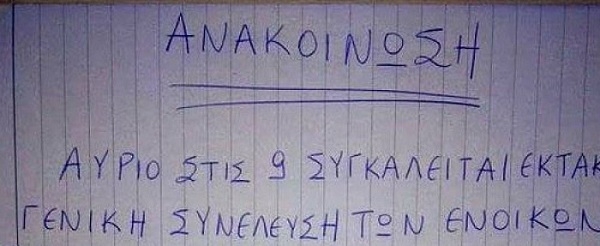 ΑΝΑΚΟΙΝΩΣΗ
ΑΥΡΙΟ ΣΤΙΣ 9 ΣΥΓΚΑΛΕΙΤΑΙ ΕΚΤΑΚ
ΓΕΝΙΚΗ ΣΥΝΕΛΕΥΣΗ ΤΩΝ ΕΝΟΙΚΩΝ